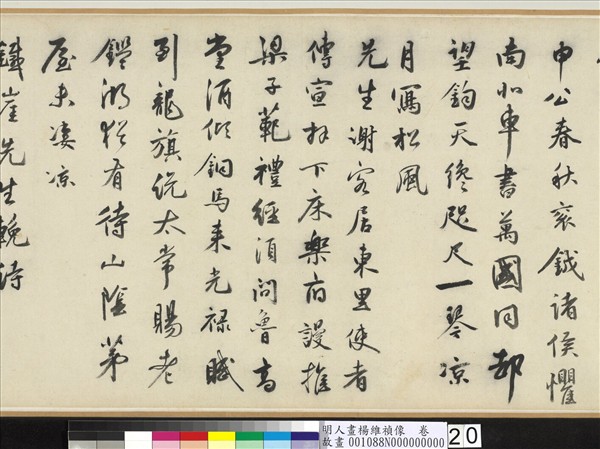 申公春秋衮鉞諸侯懼
尚北車書萬國同都
望鈞天終咫尺一琴涼
月寫松風
先生謝客居東里使者
傳宣拜下床樂府謾推
梁子範禮經須問魯高
堂酒傾銅馬來光祿賦
到龍旗從太常賜老
鑑湖猶有待山陰茅
屋未凄涼
鐵崖先生輓詩
明人畫楊維禎像 卷
故畫 001088N000000000 20